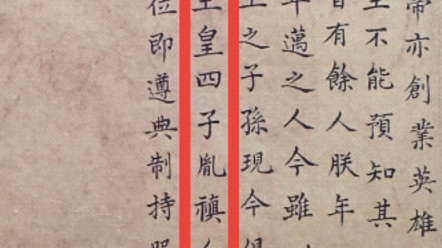 帝亦創業英雄
至不能預知其
皆有餘人朕年
年邁之人今雖
之子孫現今俱
皇四子胤禛人
位即遵典制持服